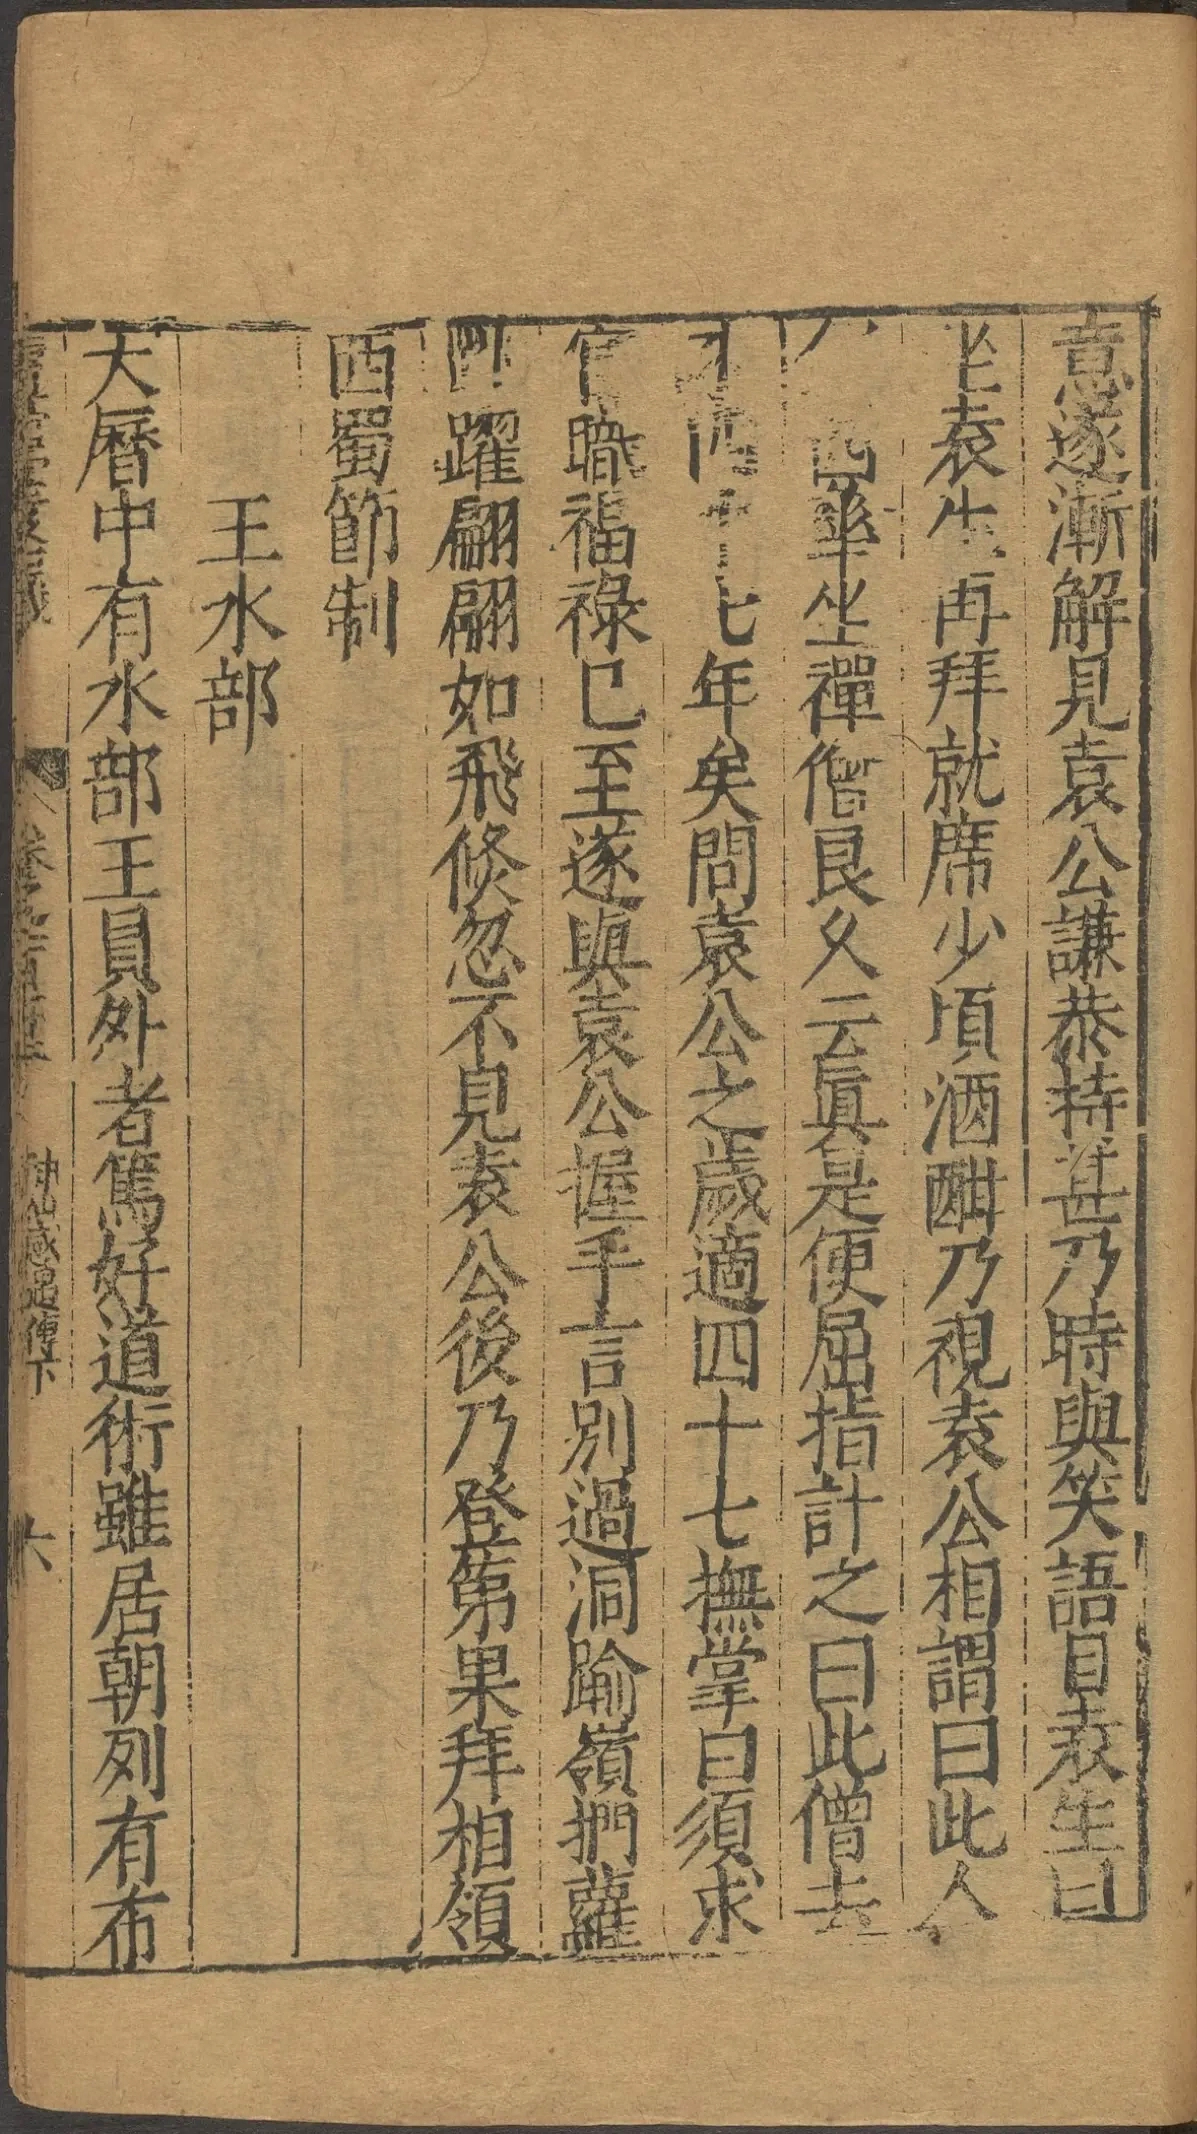 意遂漸解見袁公謙恭持甚乃時與笑語目袁生曰
坐袁生再拜就席少頃酒酣乃視袁公相謂曰此人
西華坐禪僧良久云眞是便屈指計之曰此僧去
四十七年矣問袁公之歲適四十七撫掌曰須求
官職福祿已至遂與袁公握手言別過洞踰嶺捫蘿
躍翩翩如飛倏忽不見袁公後乃登第果拜相領
西蜀節制
王水部
大曆中有水部王員外者篤好道術雖居朝列有布
神仙感遇傳下
六